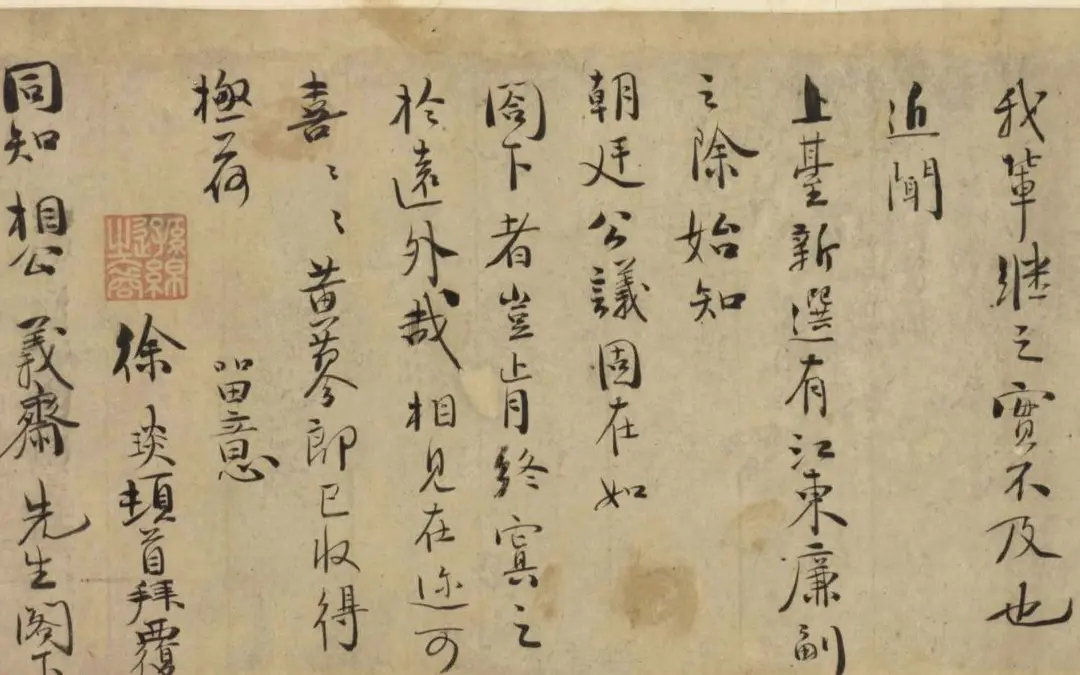 我輩継之實不及也
近聞
上臺新選有江東廉副
之除始知
朝廷公議固在如
閤下者豈肯終寘之
於遠外哉相見在迩可
喜〻〻黄芩即已收得
極荷
留意
徐琰頓首拜覆
同知相公義齋先生閣下